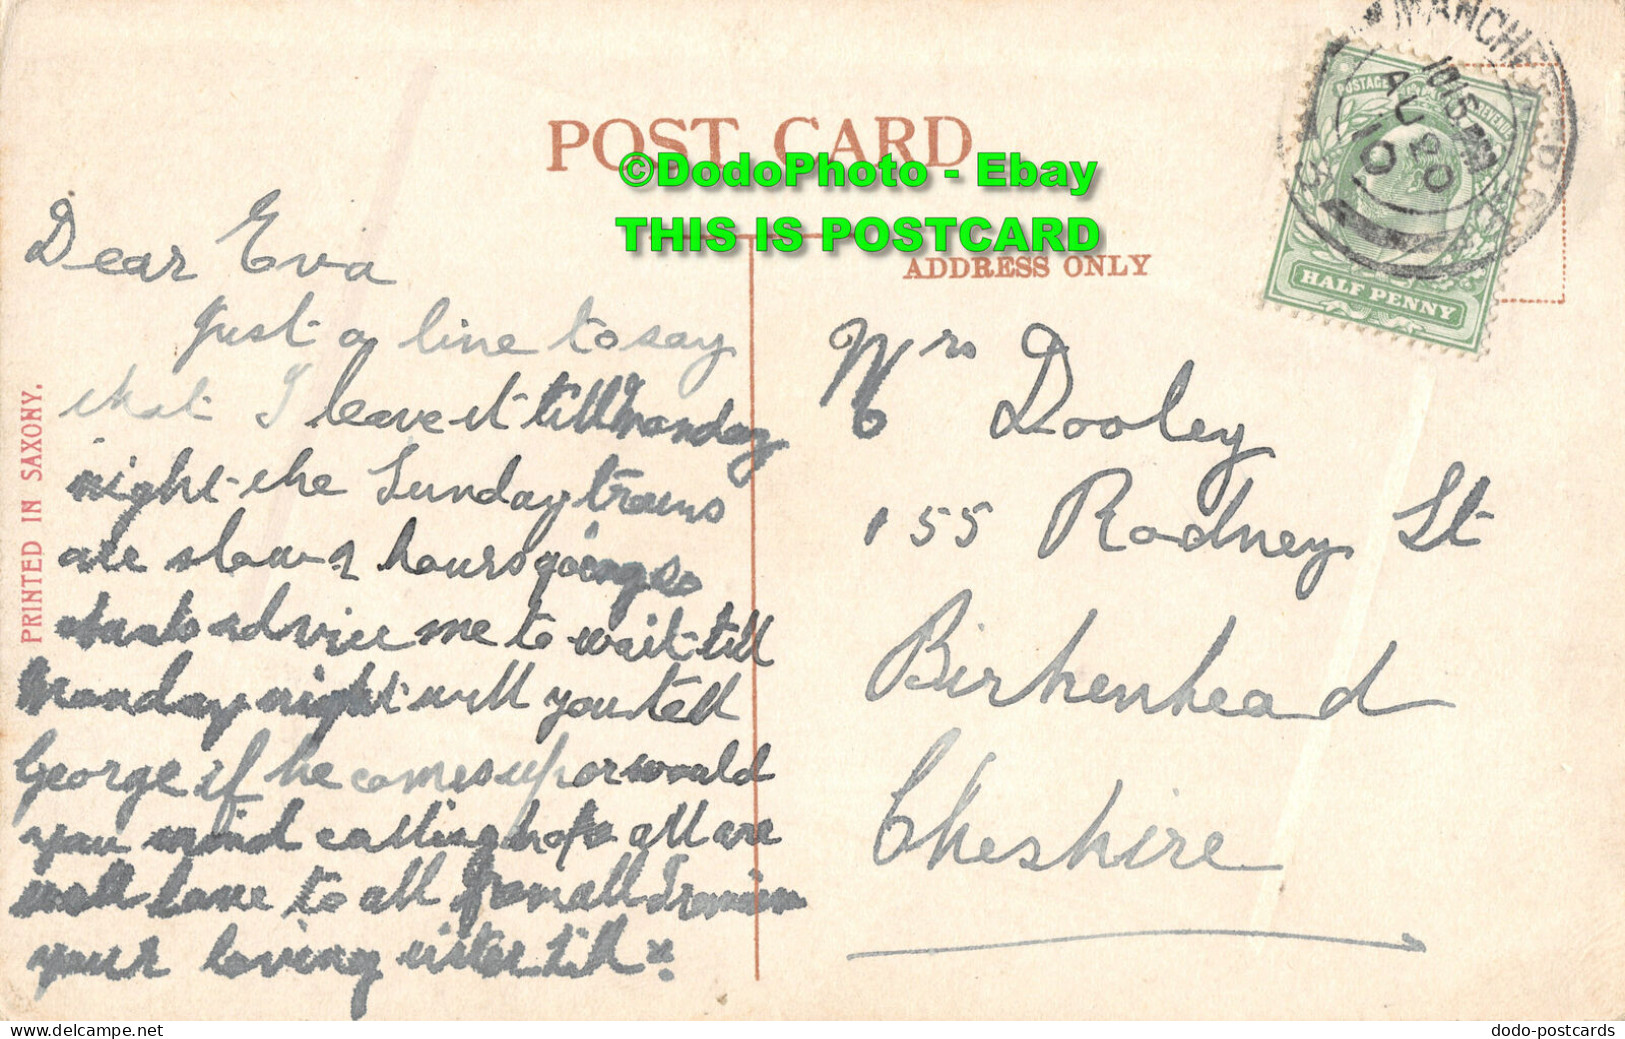 POST CARD
©DodoPhoto - Ebay
THIS IS POSTCARD
ADDRESS ONLY
PRINTED IN SAXONY.
MANCHESTER
1015 AM
AU 20
10
POSTAGE REVENUE
HALF PENNY
Dear Eva
Just a line to say
that I leave it till Monday
night the Sunday trains
are slow hours going so
advice me to wait till
Monday night will you tell
George if he comes up or would
you mind calling hope all are
well love to all from all I remain
your loving sister Lill x.
Mrs Dooley
155 Rodney St
Birkenhead
Cheshire
www.delcampe.net
dodo-postcards